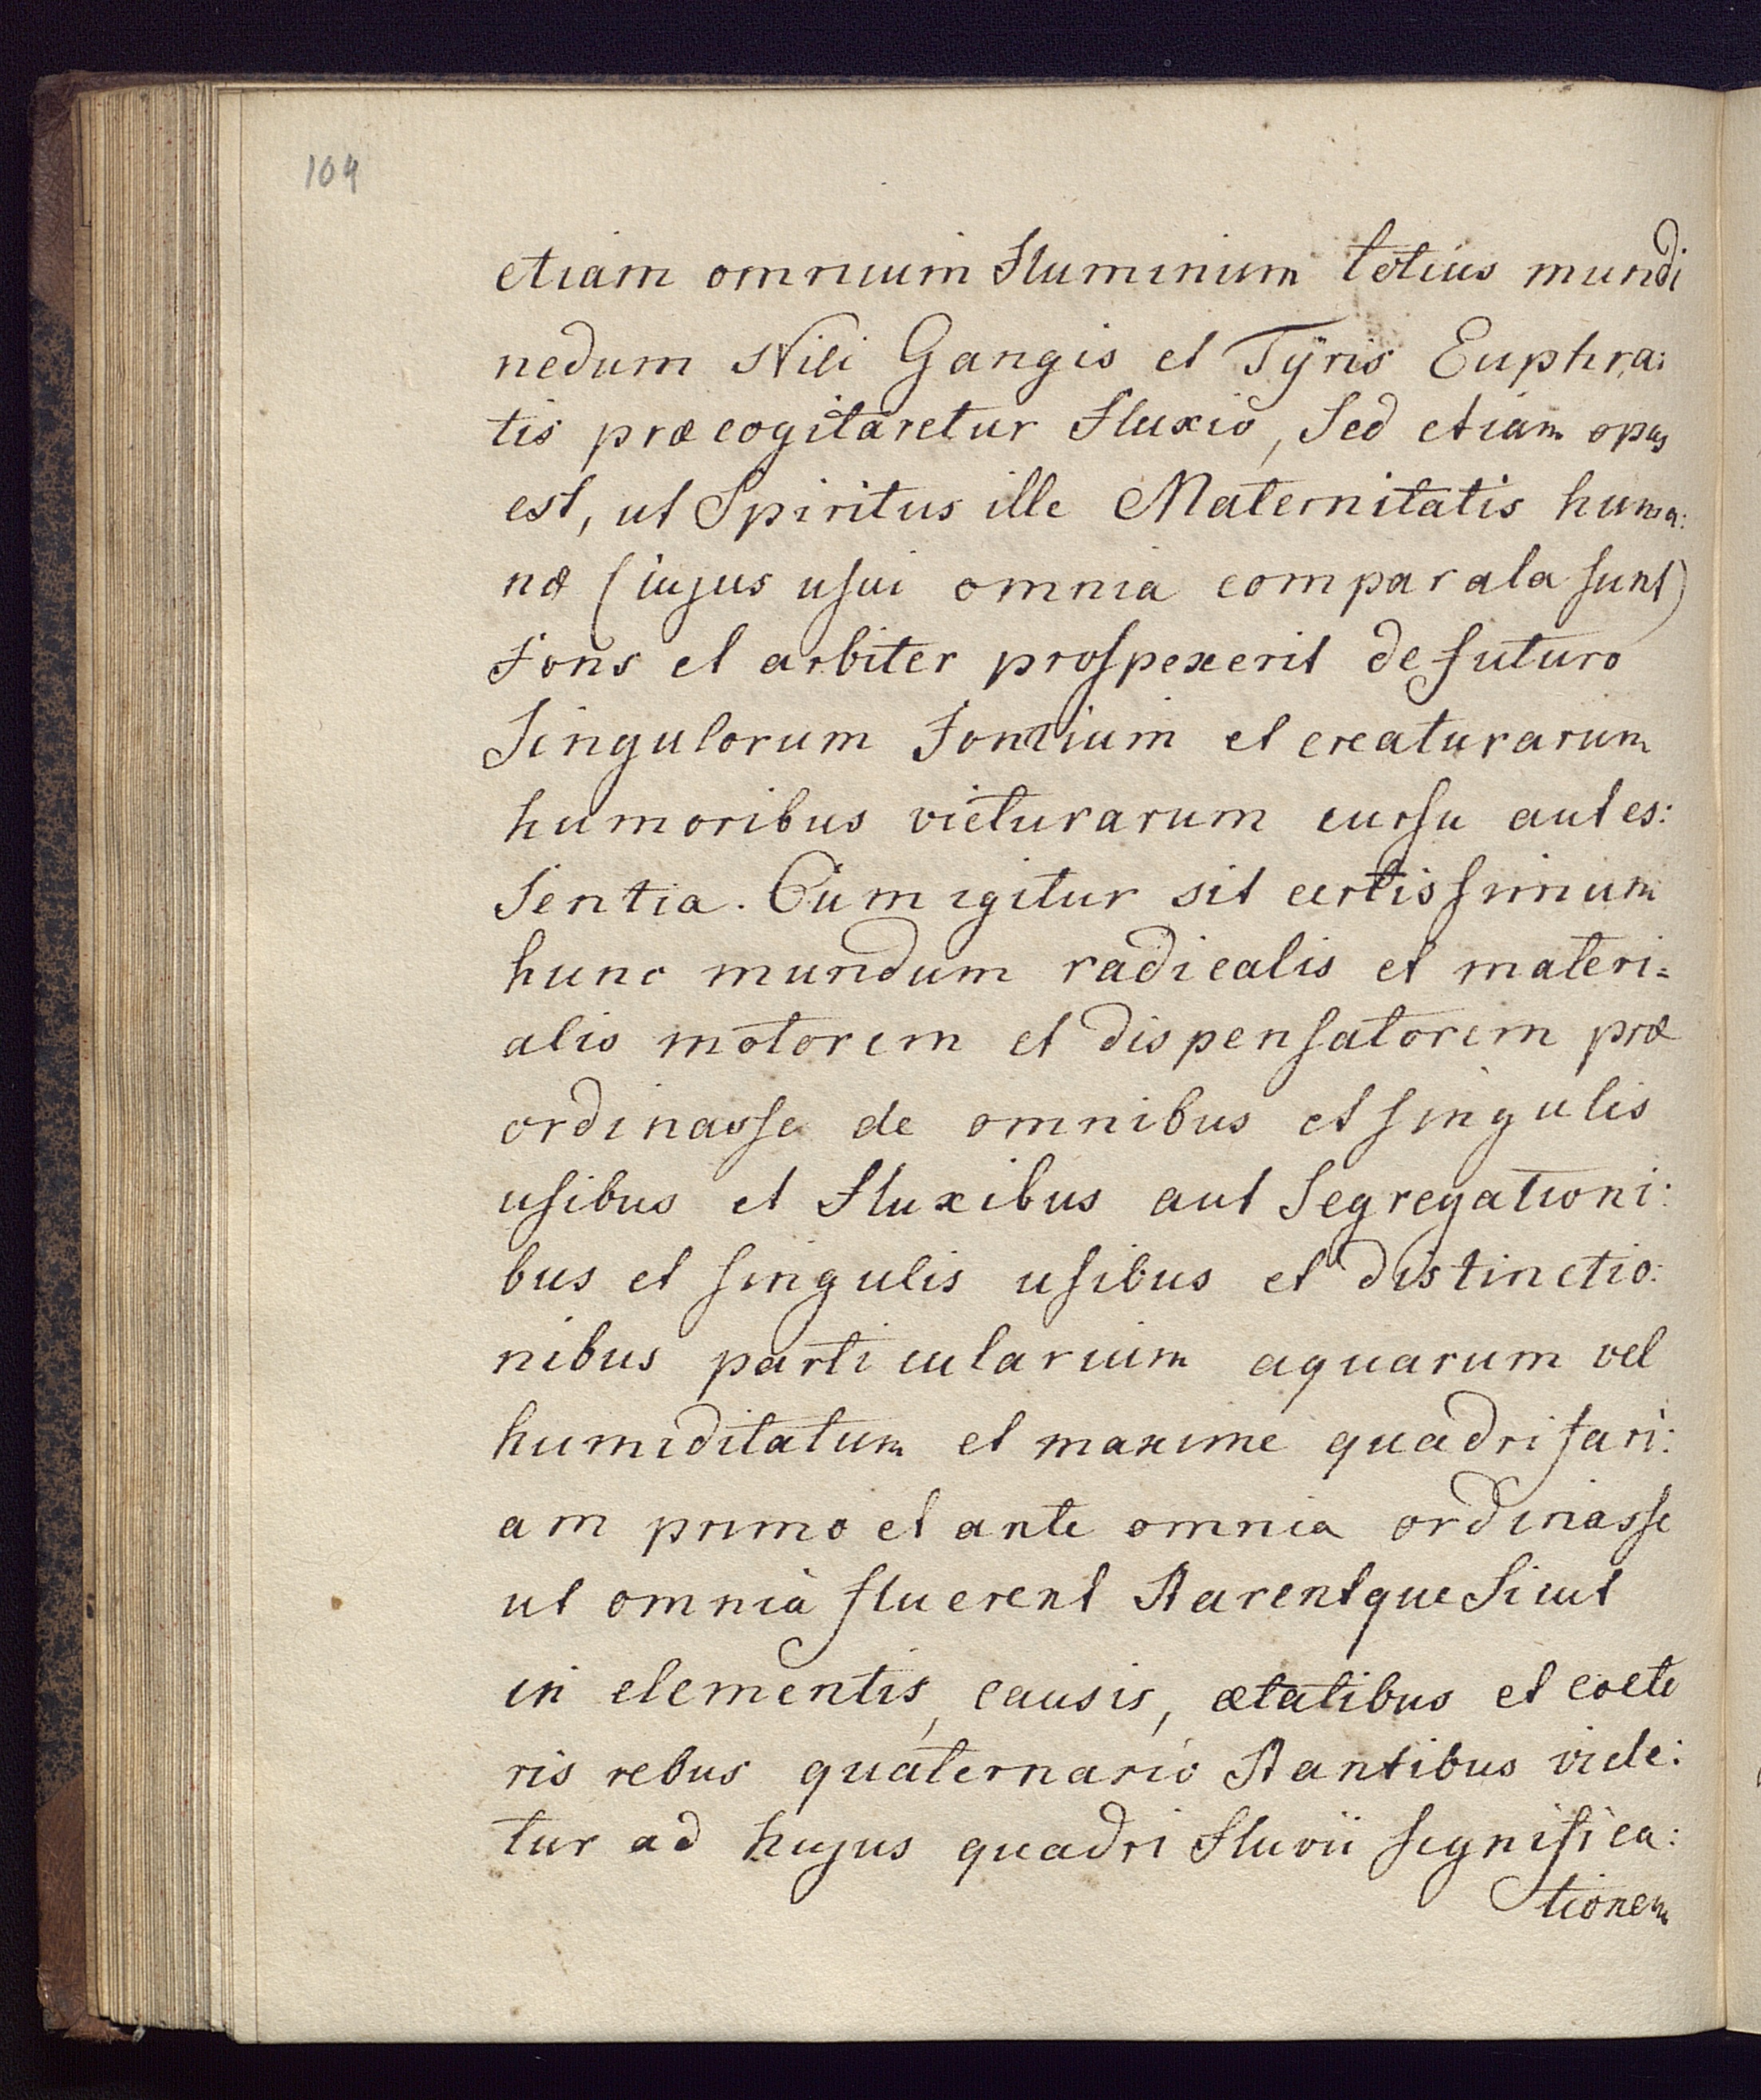 104
etiam omnium Fluminum totius mundi
nedum Nili Gangis et Tÿris Euphra:
tis præcogitaretur Fluxio, Sed etiam opus
est, ut Spiritus ille Maternitatis huma:
næ (cujus uſui omnia comparata ſunt)
Fons et arbiter proſpexerit de futuro
Singulorum Fontium et creaturarum
humoribus victurarum curſu aut es:
Sentia. Cum igitur sit certisſimum
hunc mundum radicalis et materi=
alis motorem et dispenſatorem præ
ordinasſe de omnibus et ſingulis
uſibus et Fluxibus aut Segregationi:
bus et ſingulis uſibus et distinctio:
nibus particularium aquarum vel
humiditatum et maxime quadrifari:
am primo et ante omnia ordinasſe
ut omnia fluerent Starentque Sicut
in elementis, causis, ætatibus et cœte
ris rebus quaternario Stantibus vide:
tur ad hujus quadri Fluvii ſignifica:
tionem